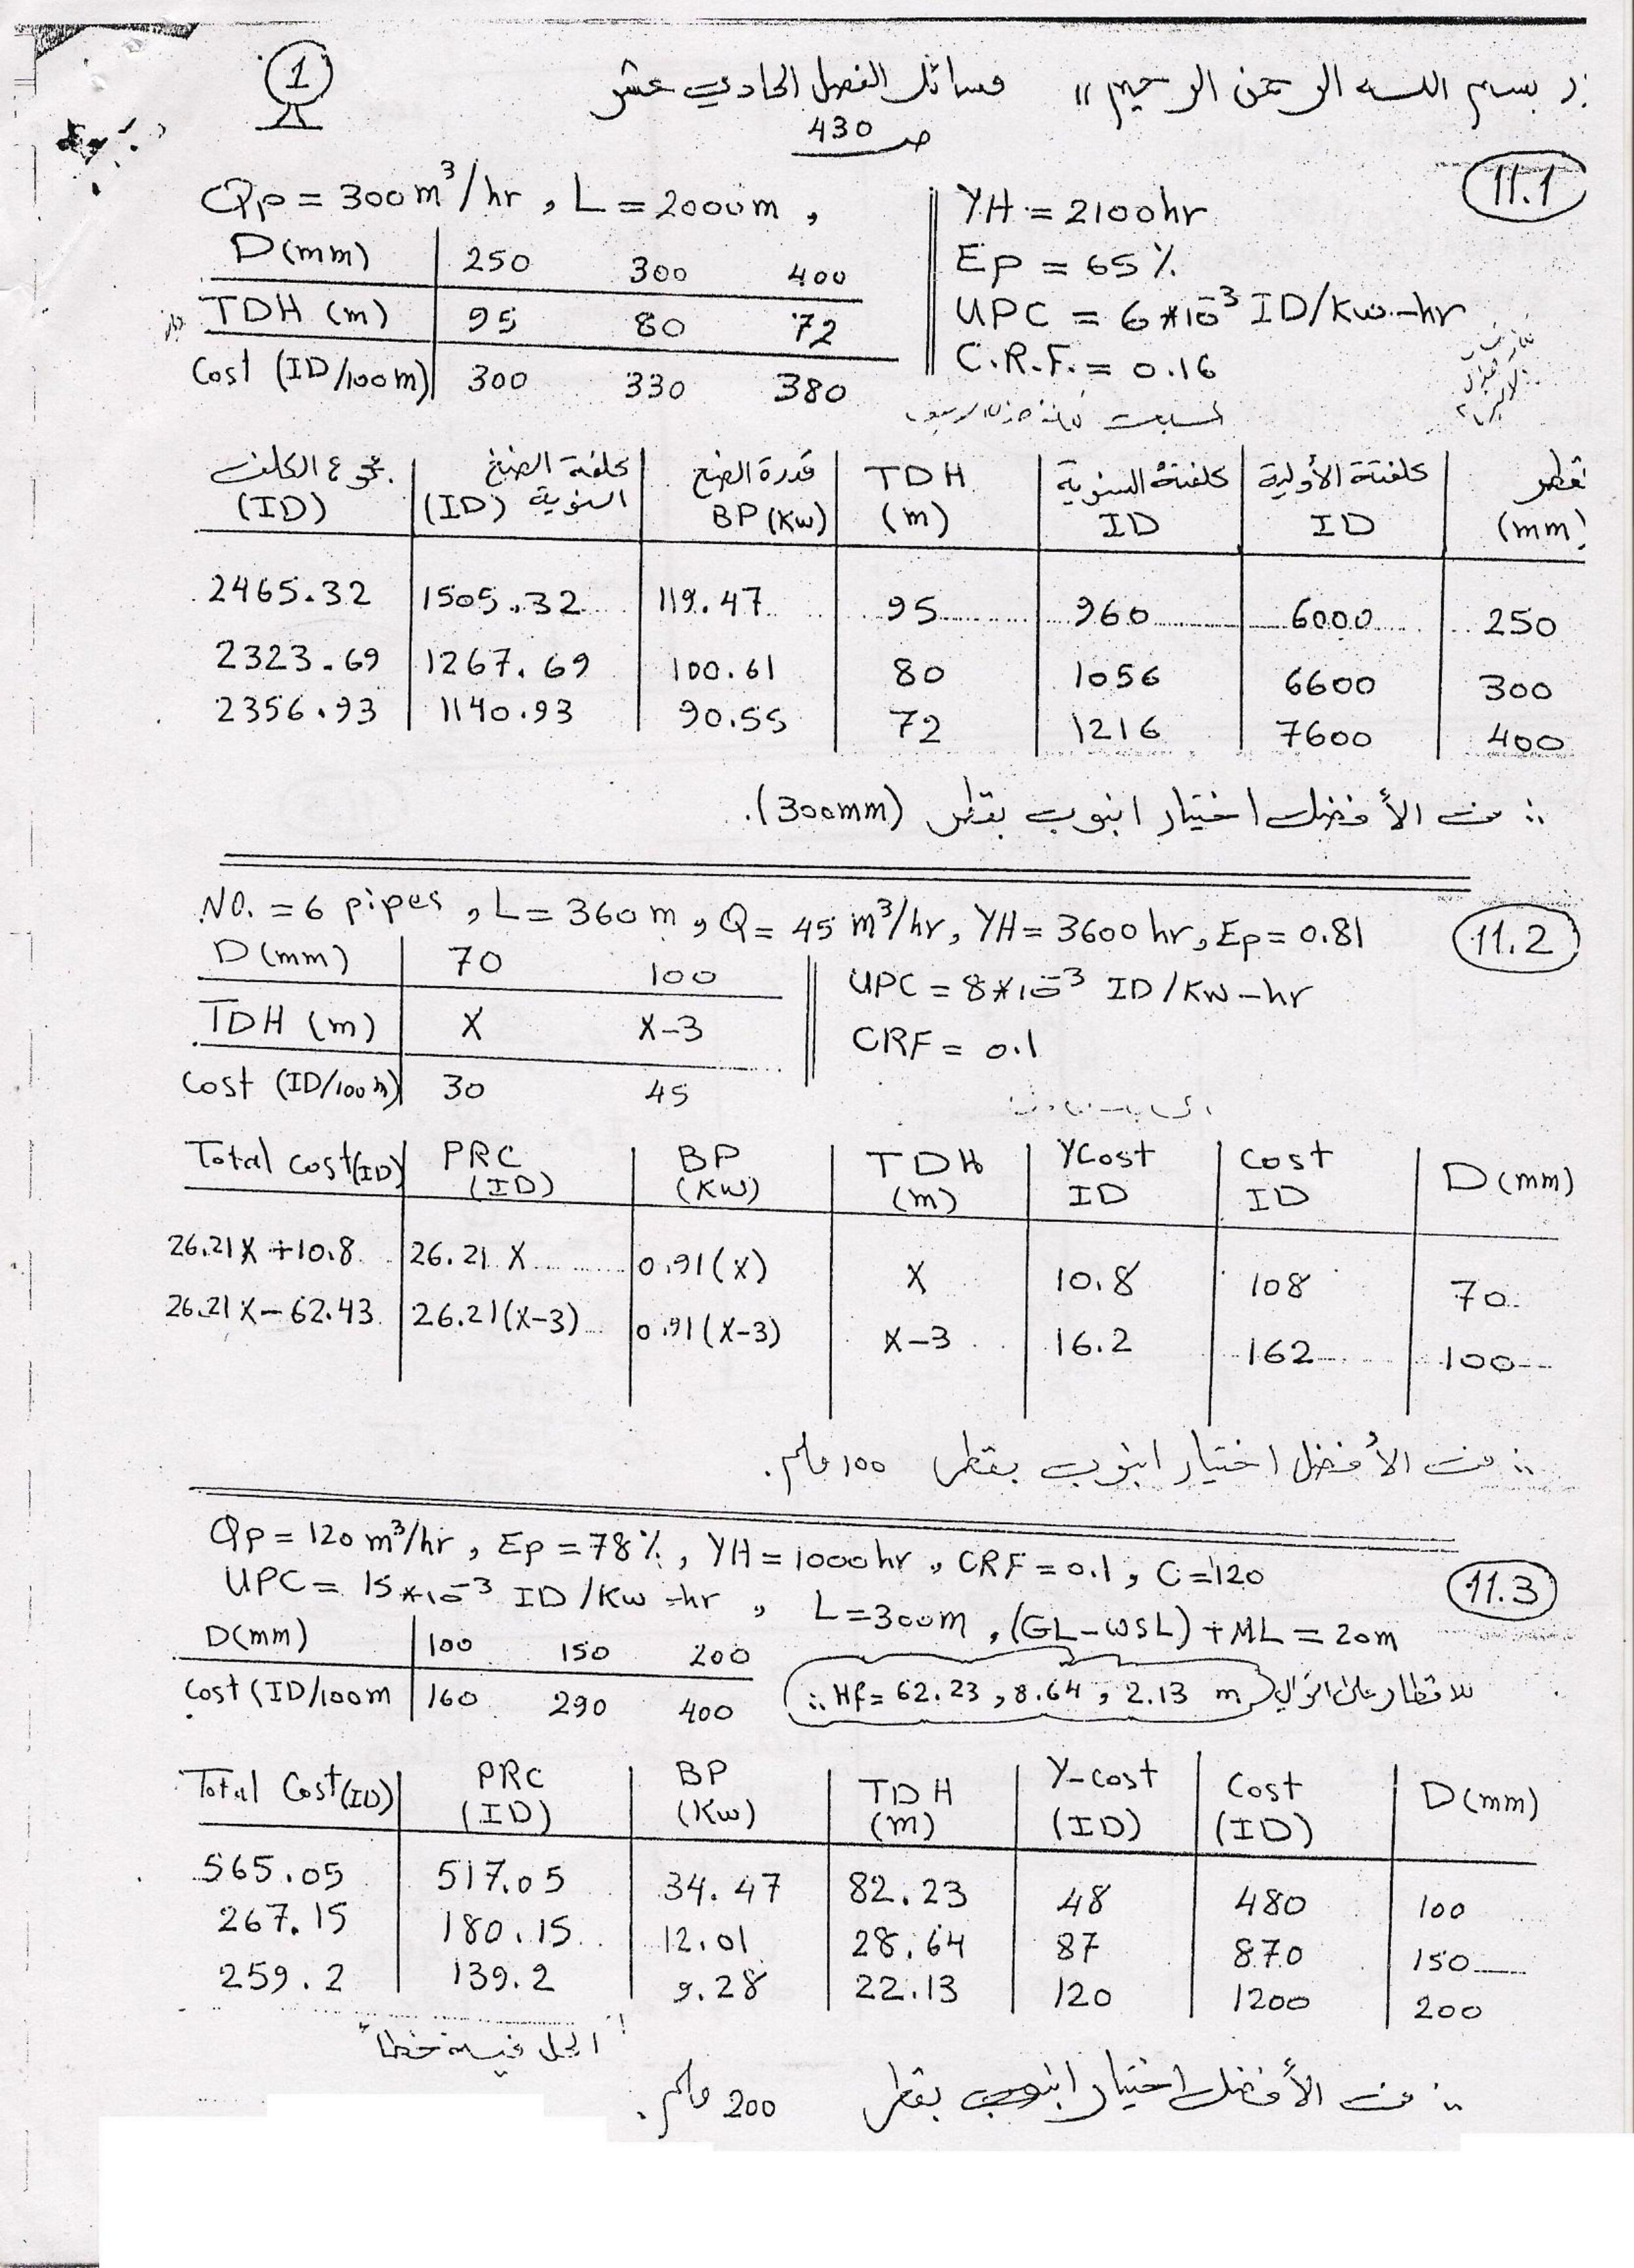 1
" بسم الله الرحمن الرحيم " مسائل الفصل الحادي عشر
ص 430
11.1
Qp = 300 m³/hr , L = 2000m ,
YH = 2100hr
D(mm) 250 300 400
Ep = 65 %
TDH (m) 95 80 72
UPC = 6*10⁻³ ID/Kw-hr
Cost (ID/100m) 300 330 380
C.R.F. = 0.16
مجموع الكلف (ID) | كلفة الضخ السنوية (ID) | قدرة الضخ BP (Kw) | TDH (m) | كلفته السنوية ID | كلفته الأولية ID | قطر (mm)
2465.32 1505.32 119.47 95 960 6000 250
2323.69 1267.69 100.61 80 1056 6600 300
2356.93 1140.93 90.55 72 1216 7600 400
∴ من الأفضل اختيار انبوب بقطر (300mm).
11.2
NO. = 6 pipes , L = 360 m , Q = 45 m³/hr , YH = 3600 hr , Ep = 0.81
D(mm) 70 100
UPC = 8*10⁻³ ID/KW-hr
TDH (m) X X-3
CRF = 0.1
Cost (ID/100m) 30 45
Total Cost(ID) | PRC (ID) | BP (KW) | TDH (m) | YCost ID | Cost ID | D(mm)
26.21X+10.8 26.21 X 0.91(X) X 10.8 108 70
26.21X-62.43 26.21(X-3) 0.91(X-3) X-3 16.2 162 100
∴ من الأفضل اختيار انبوب بقطر 100 ملم.
11.3
Qp = 120 m³/hr , Ep = 78% , YH = 1000hr , CRF = 0.1 , C=120
UPC = 15*10⁻³ ID/Kw-hr , L=300m , (GL-WSL)+ML = 20m
D(mm) 100 150 200
Cost (ID/100m 160 290 400
∴ Hf = 62.23 , 8.64 , 2.13 m للاقطار على التوالي
Total Cost(ID) | PRC (ID) | BP (Kw) | TDH (m) | Y-cost (ID) | Cost (ID) | D(mm)
565.05 517.05 34.47 82.23 48 480 100
267.15 180.15 12.01 28.64 87 870 150
259.2 139.2 9.28 22.13 120 1200 200
الحل فيه خطأ
∴ من الأفضل اختيار انبوب بقطر 200 ملم.